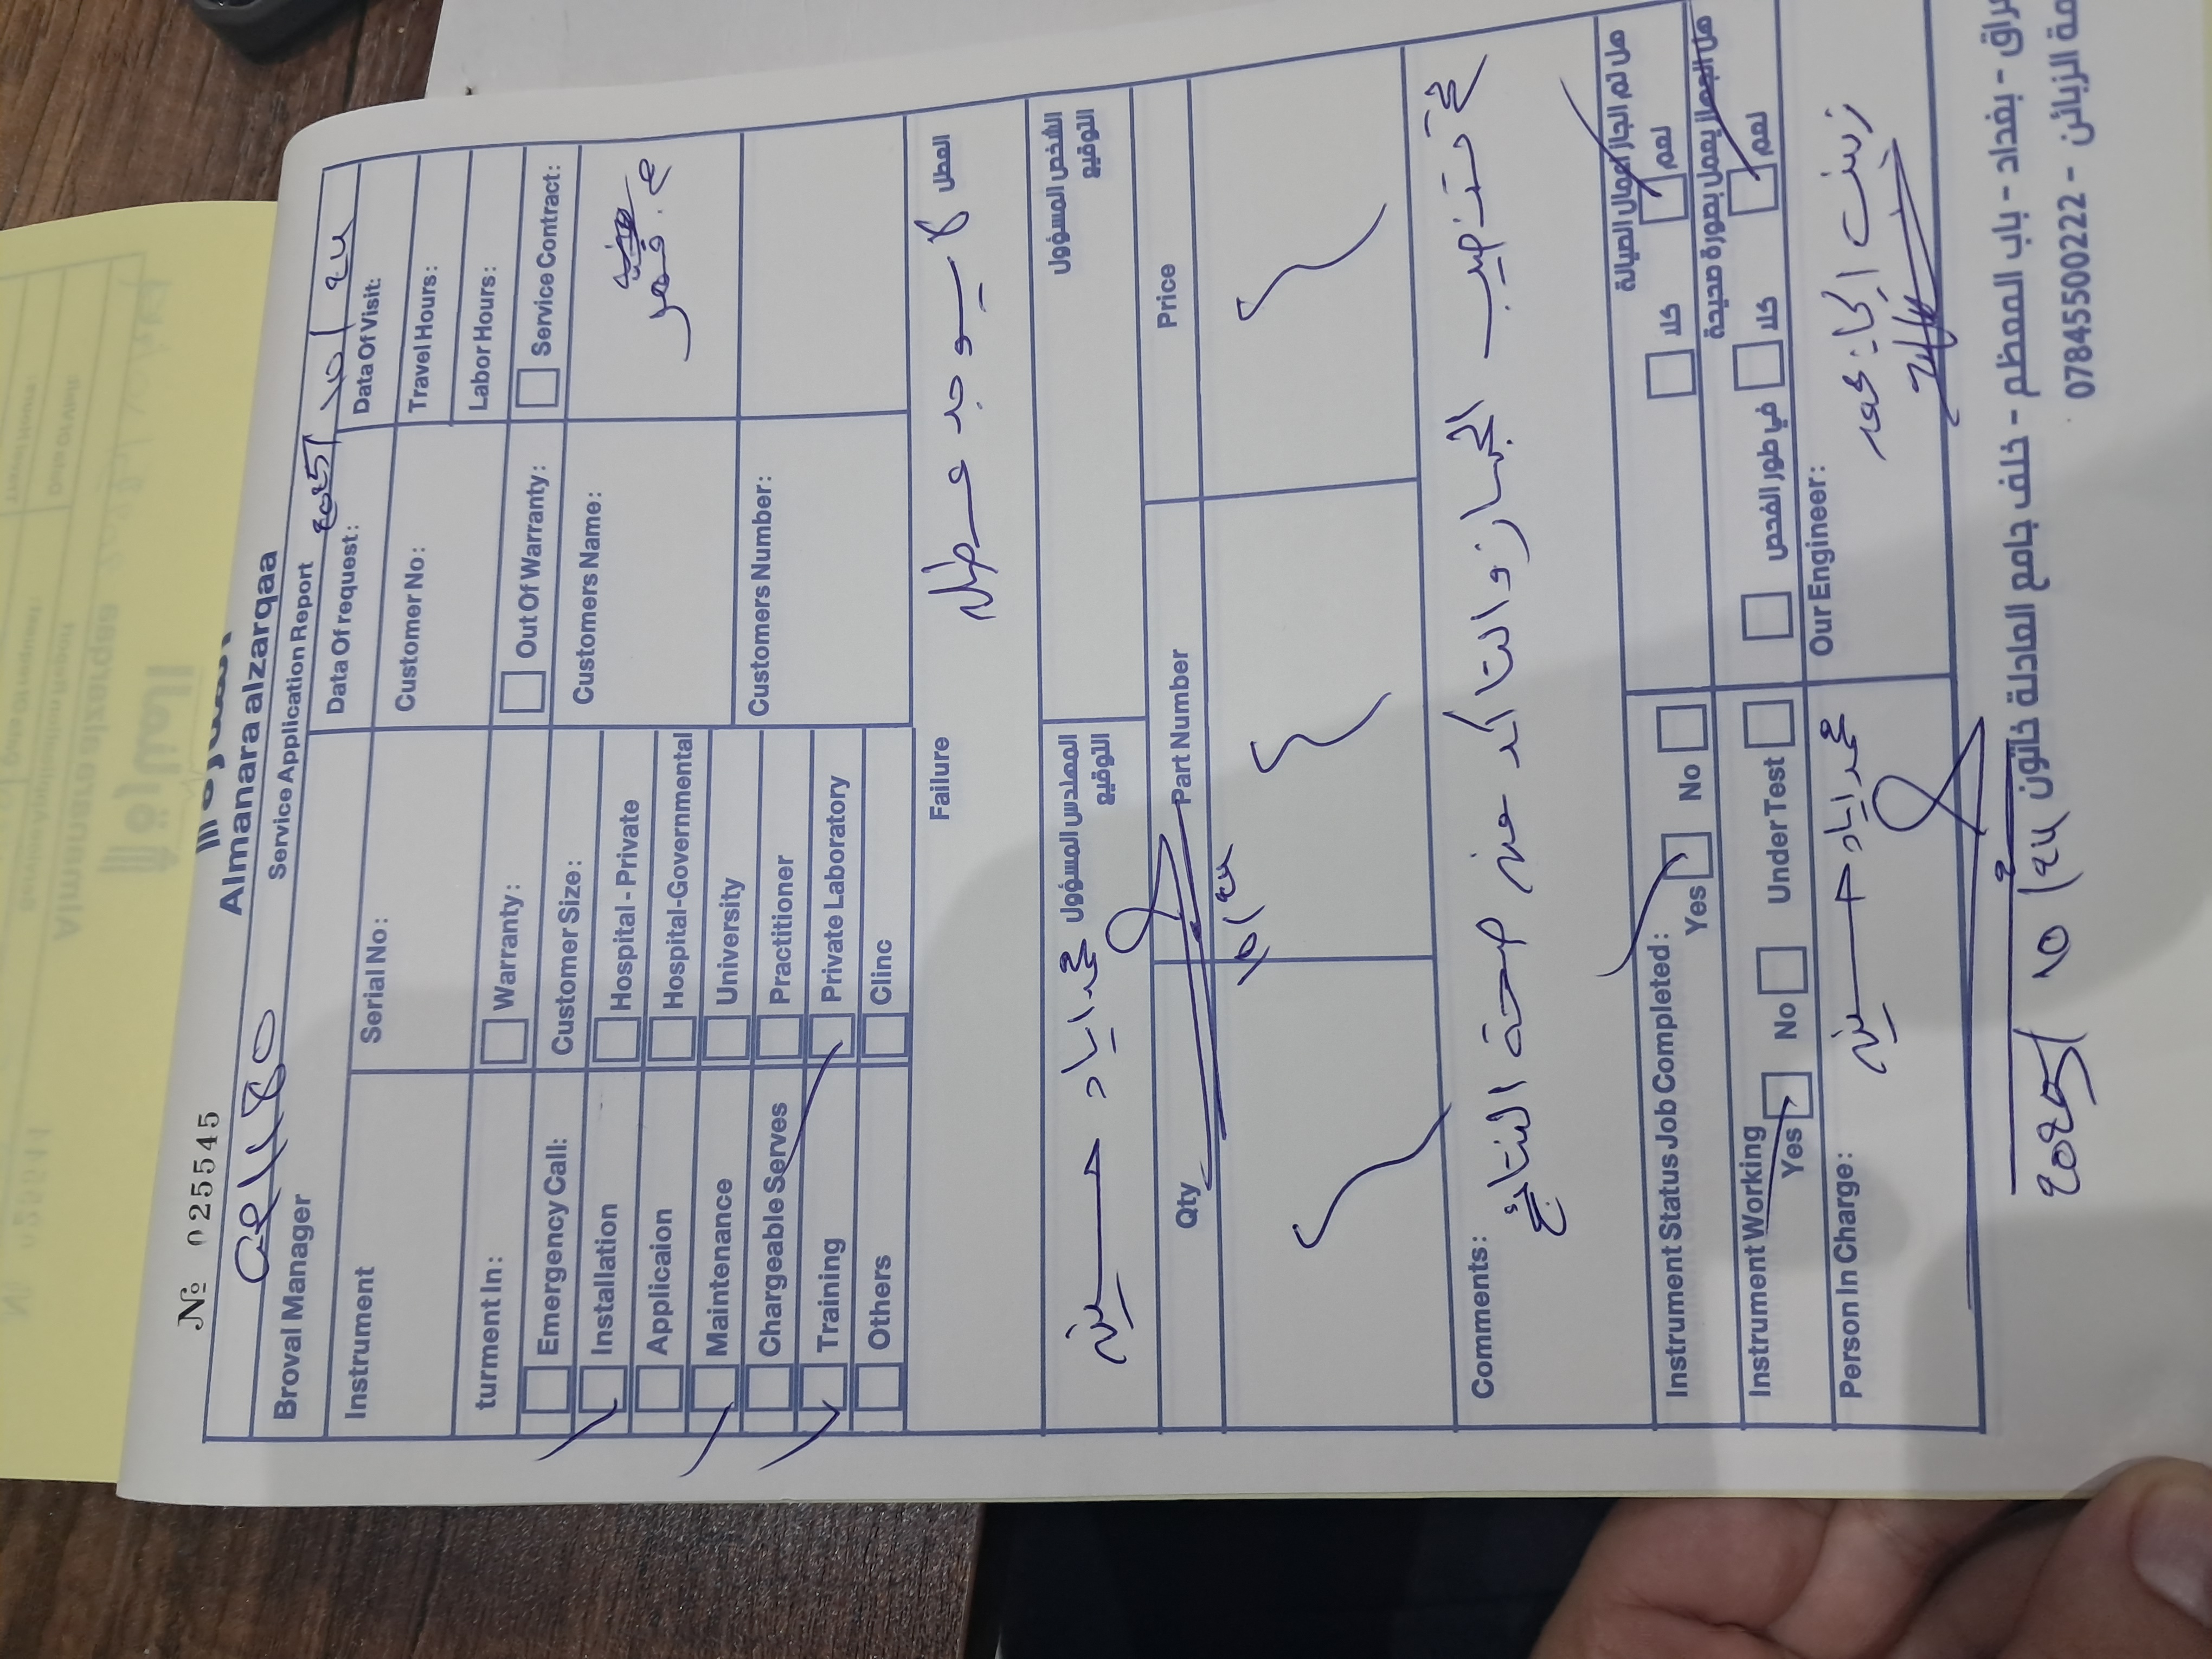 № 025545
Almanara alzarqaa
Service Application Report
Broval Manager
2025/10/24
Instrument
Serial No:
Data Of request:
Data Of Visit:
Customer No:
Travel Hours:
Labor Hours:
turment In:
Warranty:
Out Of Warranty:
Service Contract:
Emergency Call:
Customer Size:
Customers Name:
Installation
Hospital - Private
Applicaion
Hospital-Governmental
Maintenance
University
Customers Number:
Chargeable Serves
Practitioner
Training
Private Laboratory
Others
Clinc
Failure
العطل
لا يوجد عطل
المهندس المسؤول
التوقيع
محمد اياد حسين
الشخص المسؤول
التوقيع
Qty
Part Number
Price
10/24
Comments:
تم تنصيب الجهاز والتأكد من صحة النتائج
Instrument Status Job Completed:
Yes
No
هل تم انجاز اعمال الصيانة
نعم
كلا
Instrument Working
Yes
No
Under Test
هل الجهاز يعمل بصورة صحيحة
نعم
كلا
في طور الفحص
Person In Charge:
محمد اياد حسين
Our Engineer:
2025/10/24
بغداد - باب المعظم - خلف جامع العادلة خاتون
07845500222